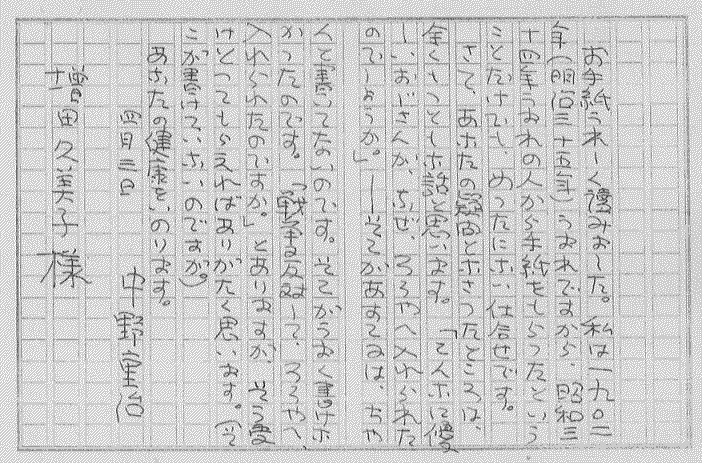 お手紙うれしく讀みました。私は一九〇二
年(明治三十五年)うまれですから、昭和三
十四年うまれの人から手紙をもらったという
ことだけでも、めったにない仕合せです。
さて、あなたの疑問となさったところは、
全くもっともな話と思います。「こんなに優
しいおじさんが、なぜ、ろうやへ入れられた
のでしょうか。」——そこがあすこには、ちゃ
んと書いてないのです。そこがうまく書けな
かったのです。「戦争に反対して、ろうやへ、
入れられたのですか。」とありますが、そう受
けとってもらえればありがたく思います。(そ
こが書けていないのですが)
あなたの健康をいのります。
四月三日
中野重治
増田久美子様